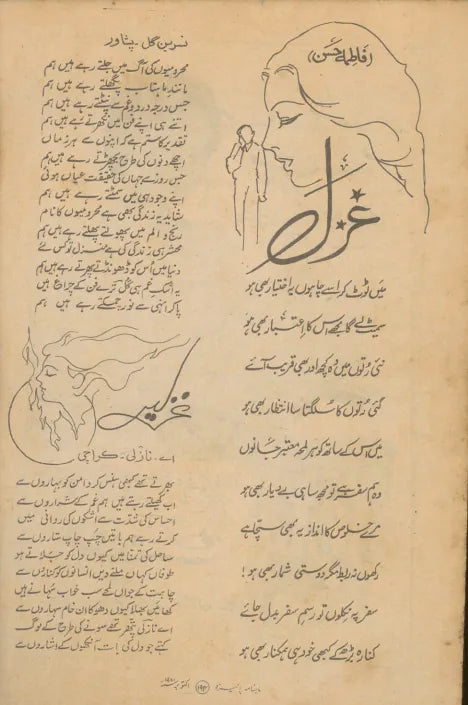 (فاطمہ حسن)
غزل
میں ٹوٹ کر اسے چاہوں یہ اختیار بھی ہو
سمیٹ لے گا مجھے اس کا اعتبار بھی ہو
نئی رتوں میں وہ کچھ اور بھی قریب آئے
گئی رتوں کا سلگتا سا انتظار بھی ہو
میں اس کے ساتھ کو ہر لمحہ معتبر جانوں
وہ ہم سفر ہے تو مجھ سا ہی بے دیار بھی ہو
مرے خلوص کا انداز یہ بھی سچا ہے
رکھوں نہ ربط مگر دوستی شمار بھی ہو!
سفر پہ نکلوں تو رسم سفر بدل جائے
کنارہ بڑھ کے کبھی خود ہی ہمکنار بھی ہو
نسرین گل۔ پشاور
محرومیوں کی آگ میں جلتے رہے ہیں ہم
مانند ماہتاب پگھلتے رہے ہیں ہم
جس درجہ درد و غم سے نپٹتے رہے ہیں ہم
اتنے ہی اپنے فن میں نکھرتے رہے ہیں ہم
تقدیر کا ستم ہے کہ اپنوں سے ہر زماں
اچھے دنوں کی طرح بچھڑتے رہے ہیں ہم
جس روز سے جہاں کی حقیقت عیاں ہوئی
اپنے وجود ہی میں سمٹتے رہے ہیں ہم
شاید یہ زندگی بھی ہے محرومیوں کا نام
رنج و الم میں پھولتے پھلتے رہے ہیں ہم
محشر ہی زندگی کی ہے منزل تو کس لئے
دنیا میں اس کو ڈھونڈتے پھرتے رہے ہیں ہم
یہ اشک غم ہی گل ترے فن کے چراغ ہیں
پا کر انہی سے نور چمکتے رہے ہیں ہم
غزلیں
اے۔ نازلی۔ کراچی
بھرتے تھے کبھی ہنس کر دامن کو بہاروں سے
اب کھیلتے رہتے ہیں ہم غم کے شراروں سے
احساس کی شدت سے اشکوں کی روانی میں
کرتے رہے ہم باتیں چپ چاپ ستاروں سے
ساحل کی تمنا میں کیوں دل کو جلاتے ہو
طوفاں کہاں ملتے دیں انسانوں کو کناروں سے
چاہت کے جواں لمحے سب خواب سہانے ہیں
کھائیں بھلا کیوں دھوکا ان خام سہاروں سے
اے نازلی پتھر تھے سونے کی طرح کے لوگ
کہتے جو دل کی بات آنکھوں کے اشاروں سے
ماہنامہ پاکیزہ (۱۹۳) اکتوبر